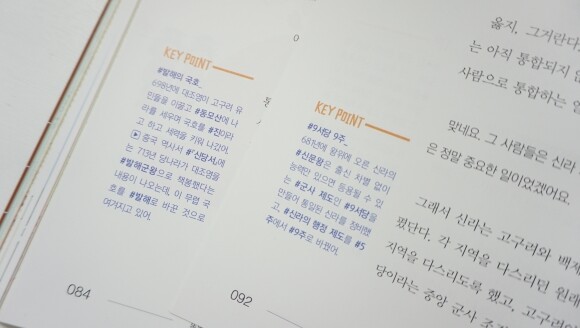 KEY POINT
#발해의 국호_
698년에 대조영이 고구려 유
민들을 이끌고 #동모산에 나
라를 세우며 국호를 #진이라
고 하고 세력을 키워 나갔어.
중국 역사서 #『신당서』에
는 713년 당나라가 대조영을
#발해군왕으로 책봉했다는
내용이 나오는데, 이 무렵 국
호를 #발해로 바꾼 것으로
여겨지고 있어.
084
KEY POINT
#9서당 9주_
681년에 왕위에 오른 신라의
#신문왕은 출신 차별 없이
능력만 있으면 등용될 수 있
는 #군사 제도인 #9서당을
만들어 통일된 신라를 정비했
고, #신라의 행정 제도를 #5
주에서 #9주로 바꿨어.
092
옳지. 그거란다
는 아직 통합되지 않
사람으로 통합하는
맞네요. 그 사람들은 신라
은 정말 중요한 일이었겠어요.
그래서 신라는 고구려와 백제
폈단다. 각 지역을 다스리던 원래
지역을 다스리도록 했고, 고구려
당이라는 중앙 군사 조